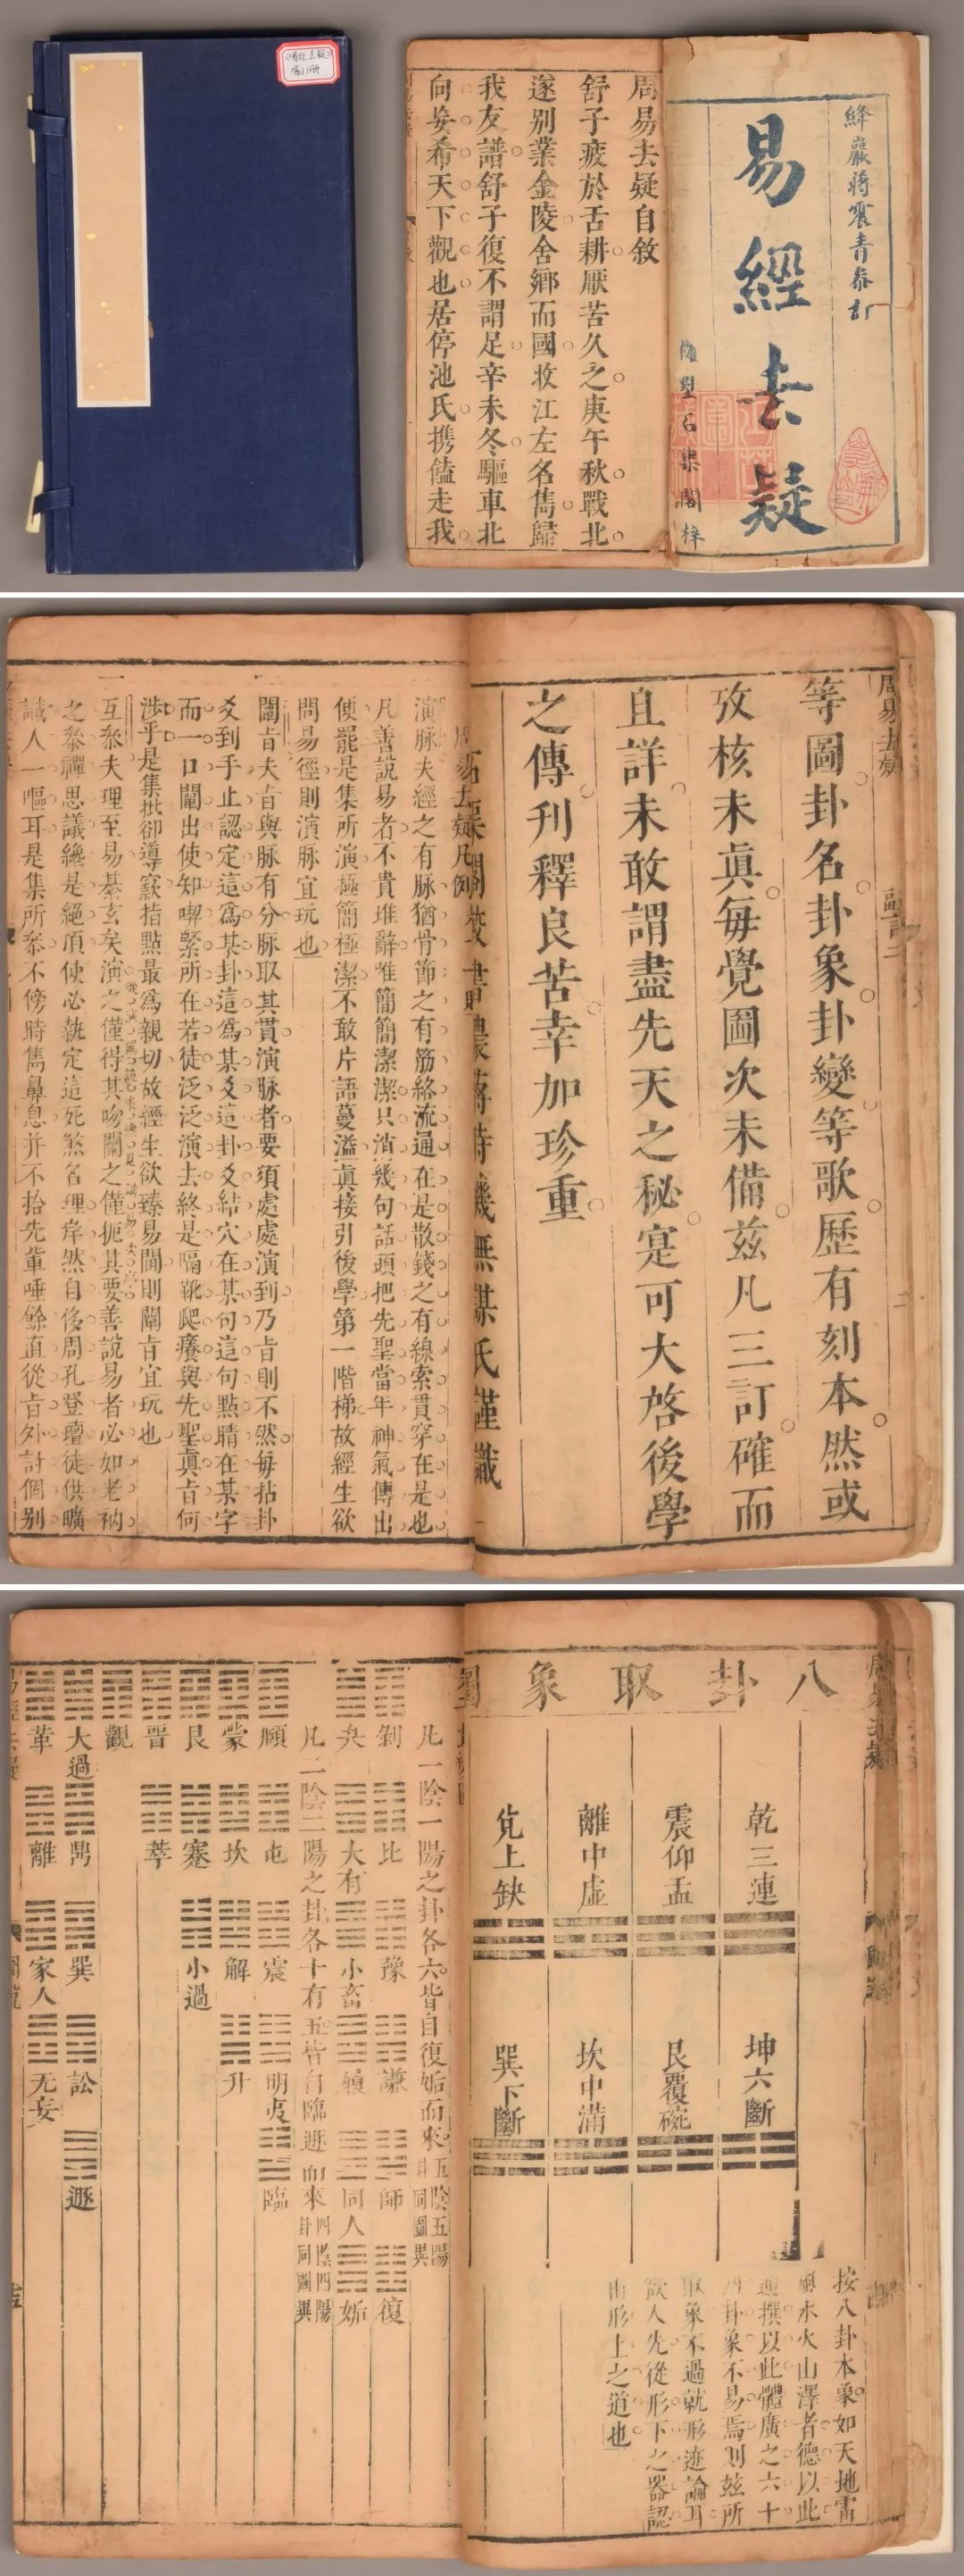 絳巖蔣震青參訂
易經去疑
石渠閣梓
周易去疑自敘
舒子疲於舌耕厭苦久之庚午秋戰北
遂别業金陵舍鄉而國攷江左名雋歸
我友譜舒子復不謂足辛未冬驅車北
向妄希天下觀也居停池氏携馌走我
周易去疑
等圖卦名卦象卦變等歌歷有刻本然或
攷核未眞毎覺圖次未備茲凡三訂確而
且詳未敢謂盡先天之秘寔可大啓後學
之傳刋釋良苦幸加珍重
周易去疑凡例
演脉夫經之有脉猶骨節之有筋絡流通在是散錢之有線索貫穿在是也
凡善說易者不貴堆辭唯簡簡潔潔只消幾句話頭把先聖當年神氣傳出
便罷是集所演極簡極潔不敢片語蔓溢眞接引後學第一階梯故經生欲
問易徑則演脉宜玩也
闡肯夫肯與脉有分脉取其貫演脉者要須處處演到乃肯則不然毎拈卦
爻到手止認定這爲某卦這爲某爻這卦爻結穴在某句這句點睛在某字
而一口闡出使知喫緊所在若徒泛泛演去終是隔靴爬癢與先聖眞肯何
涉乎是集批卻導窾指點最爲親切故經生欲臻易閫則闡肯宜玩也
互叅夫理至易綦玄矣演之僅得其吻闡之僅扼其要善說易者必如老衲
之叅禪思議纔是絕頂使必執定這死煞名理岸然自侈周孔登壇徒供曠
識人一嘔耳是集所叅不傍時雋鼻息并不拾先輩唾餘直從肯外計個别
八卦取象圖
乾三連
坤六斷
震仰盂
艮覆碗
離中虛
坎中滿
兌上缺
巽下斷
按八卦本象如天地雷
風水火山澤者德以此
卦象不易焉則兹所
取象不過就形迹論耳
欲人先從形下之器認
出形上之道也
凡一陰一陽之卦各六皆自復姤而來五陰五陽卦同圖異
剝 比 豫 謙 師 復
夬 大有 小畜 履 同人 姤
凡二陰二陽之卦各十有五皆自臨遯而來四陰四陽卦同圖異
頤 屯 震 明夷 臨
蒙 坎 解 升
艮 蹇 小過
晉 萃
觀
大過 鼎 巽 訟 遯
革 離 家人 无妄